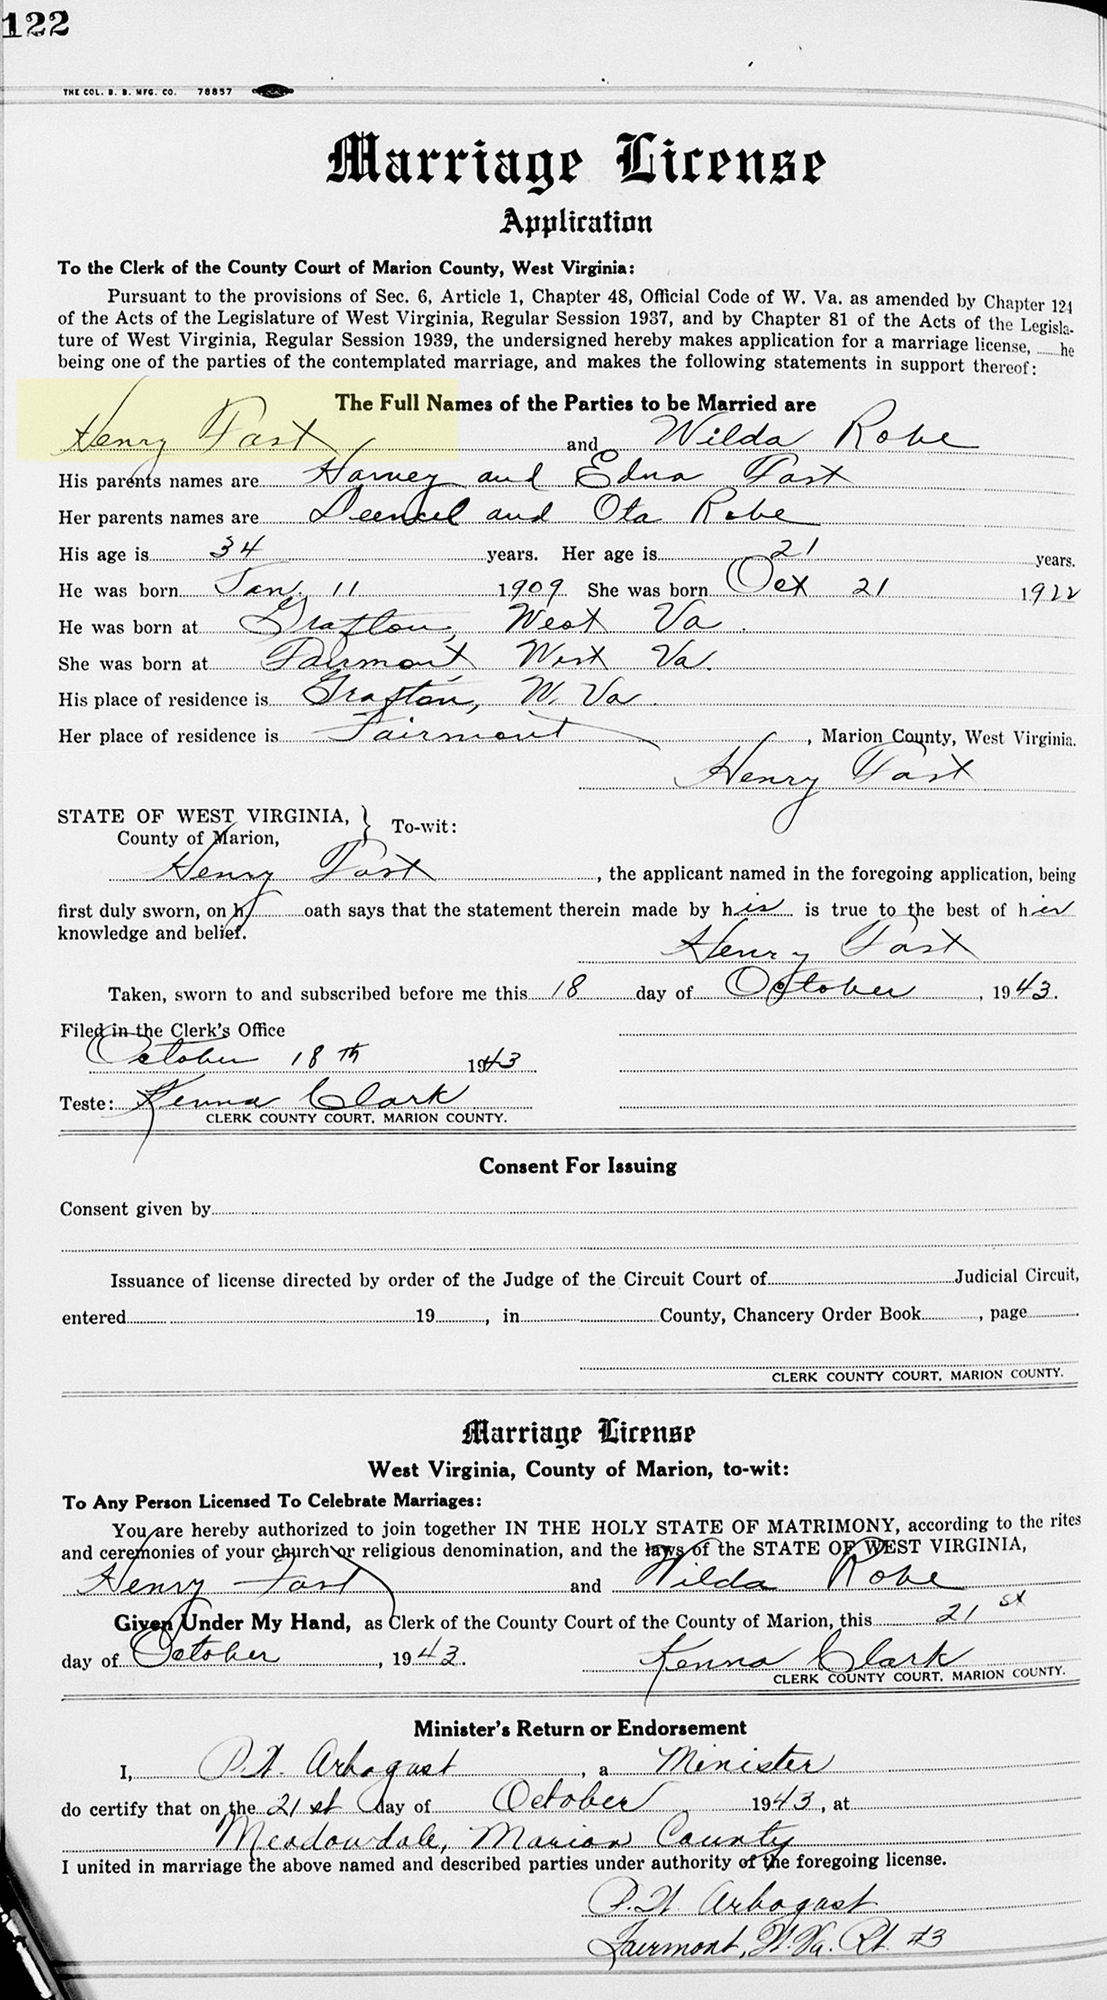 122
THE COL. B. B. MFG. CO. 78857
Marriage License
Application
To the Clerk of the County Court of Marion County, West Virginia:
Pursuant to the provisions of Sec. 6, Article 1, Chapter 48, Official Code of W. Va. as amended by Chapter 124
of the Acts of the Legislature of West Virginia, Regular Session 1937, and by Chapter 81 of the Acts of the Legisla-
ture of West Virginia, Regular Session 1939, the undersigned hereby makes application for a marriage license, ......he
being one of the parties of the contemplated marriage, and makes the following statements in support thereof:
The Full Names of the Parties to be Married are
Henry Fast and Wilda Robe
His parents names are Harvey and Edna Fast
Her parents names are and Ota Robe
His age is 34 years. Her age is 21 years.
He was born Jan. 11 1909 She was born Oct 21 1922
He was born at Grafton, West Va.
She was born at Fairmont West Va.
His place of residence is Grafton, W. Va.
Her place of residence is Fairmont, Marion County, West Virginia.
Henry Fast
STATE OF WEST VIRGINIA, } To-wit:
County of Marion,
Henry Fast, the applicant named in the foregoing application, being
first duly sworn, on h oath says that the statement therein made by his is true to the best of his
knowledge and belief.
Henry Fast
Taken, sworn to and subscribed before me this 18 day of October, 1943.
Filed in the Clerk's Office
October 18th 1943
Teste: Kenna Clark
CLERK COUNTY COURT, MARION COUNTY.
Consent For Issuing
Consent given by
Issuance of license directed by order of the Judge of the Circuit Court of Judicial Circuit,
entered 19, in County, Chancery Order Book, page
CLERK COUNTY COURT, MARION COUNTY.
Marriage License
West Virginia, County of Marion, to-wit:
To Any Person Licensed To Celebrate Marriages:
You are hereby authorized to join together IN THE HOLY STATE OF MATRIMONY, according to the rites
and ceremonies of your church or religious denomination, and the laws of the STATE OF WEST VIRGINIA,
Henry Fast and Wilda Robe
Given Under My Hand, as Clerk of the County Court of the County of Marion, this 21st
day of October, 1943. Kenna Clark
CLERK COUNTY COURT, MARION COUNTY.
Minister's Return or Endorsement
I, Arbogast, a Minister
do certify that on the 21st day of October 1943, at
Meadowdale, Marion County
I united in marriage the above named and described parties under authority of the foregoing license.
Arbogast
Fairmont, W. Va. Rt. #3